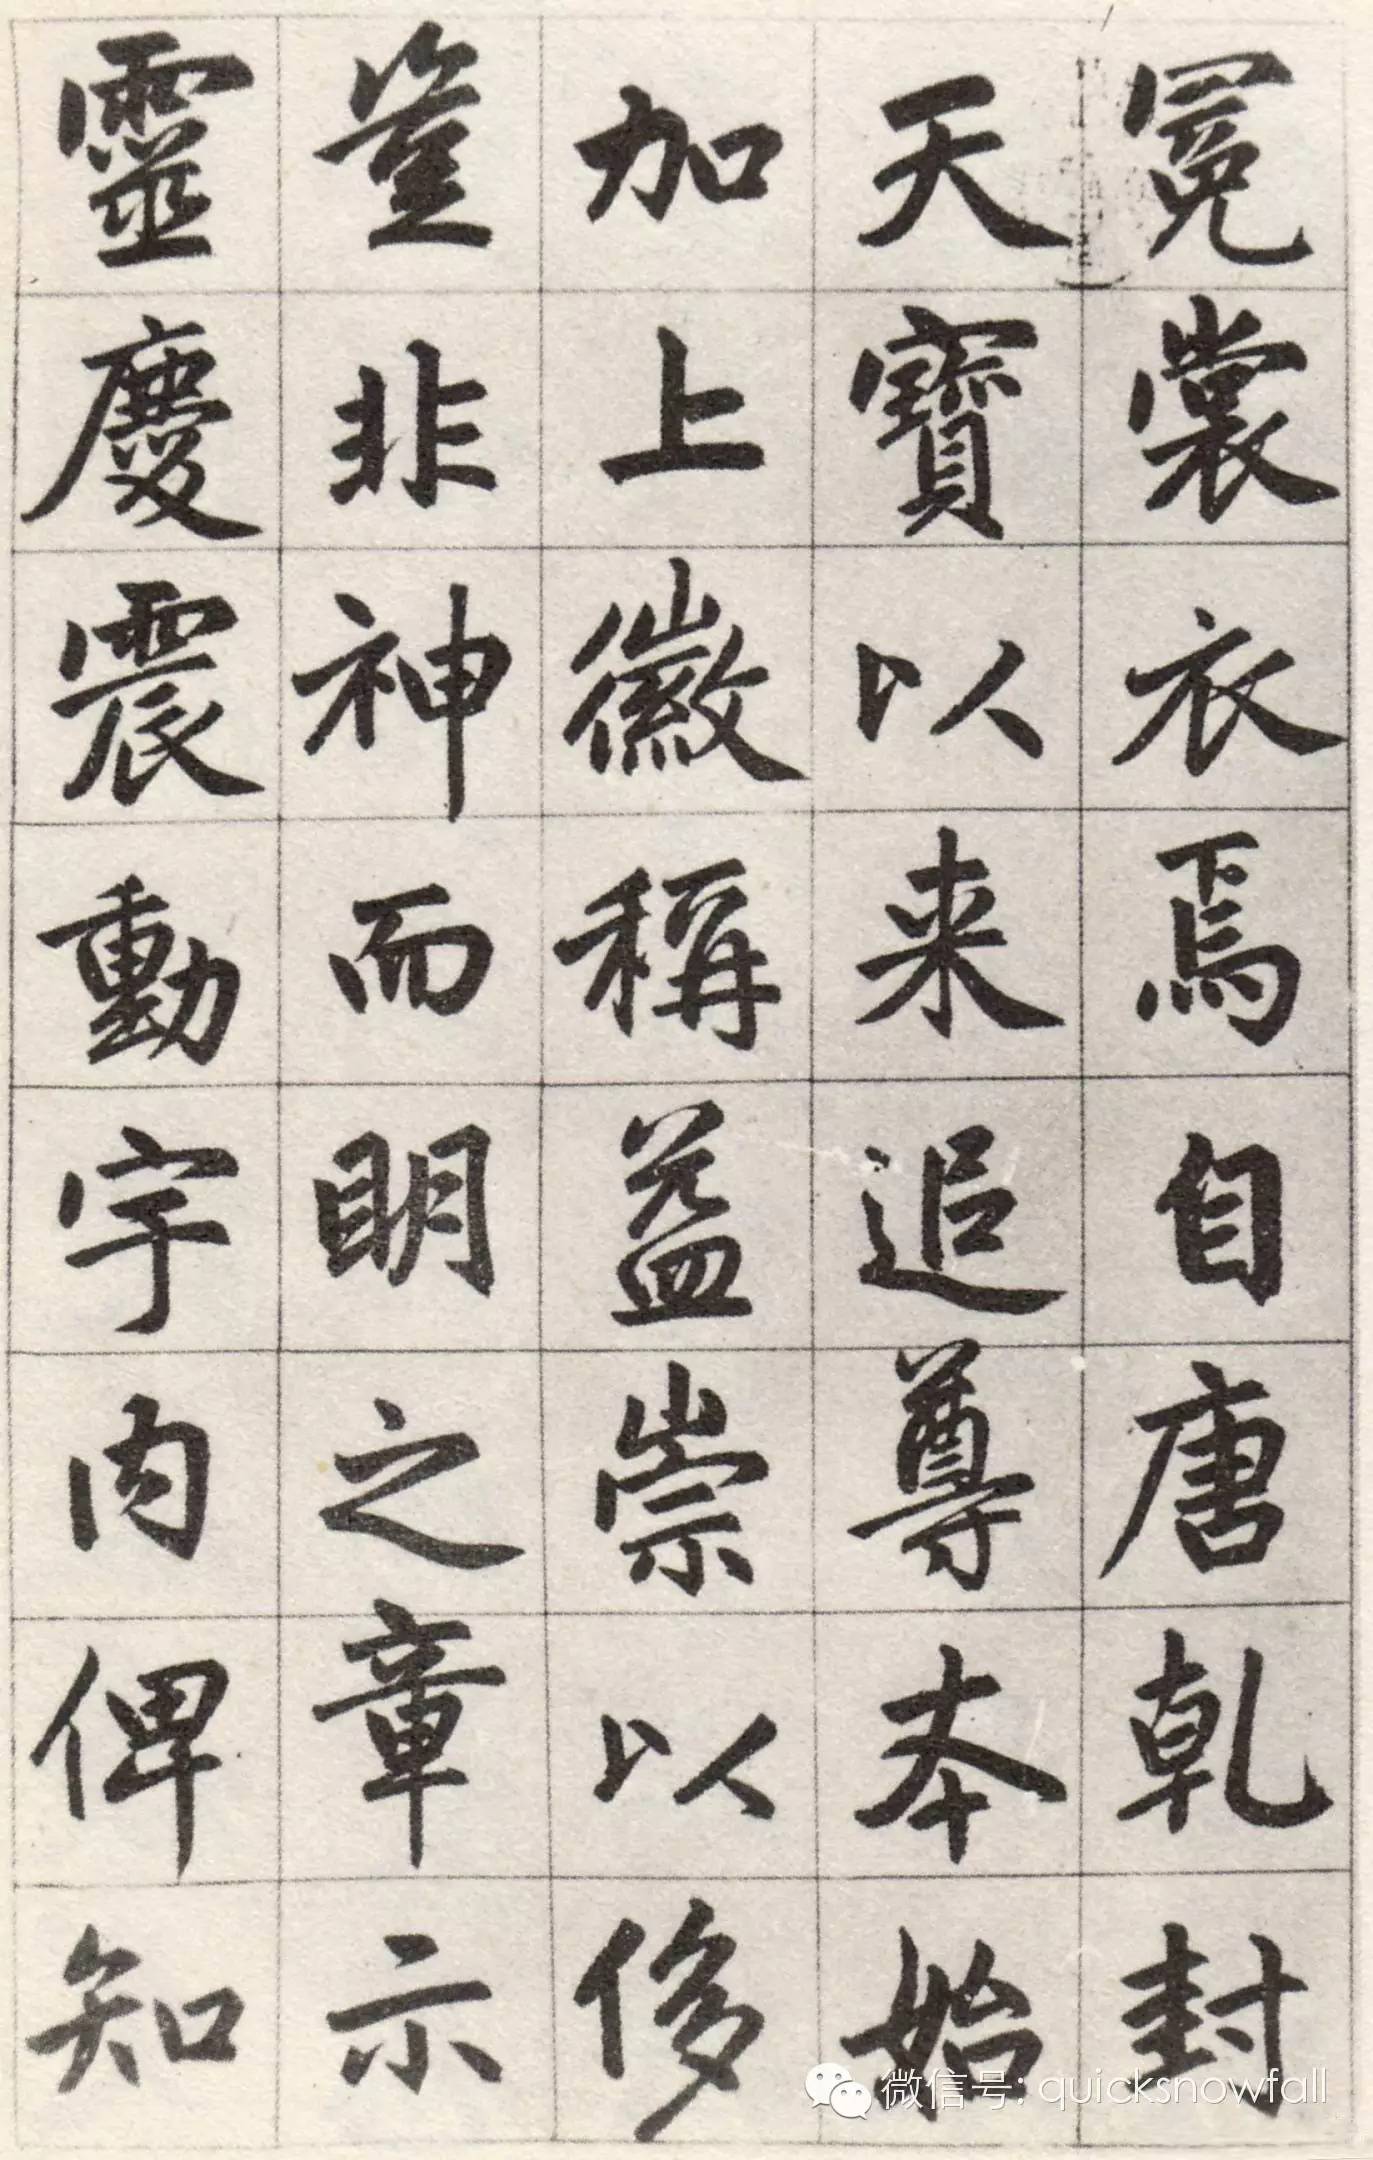 冕裳衣焉自唐乾封
天寶以来追尊本始
加上徽稱益崇以侈
豈非神而明之章示
靈慶震動宇内俾知
微信号: quicksnowfall